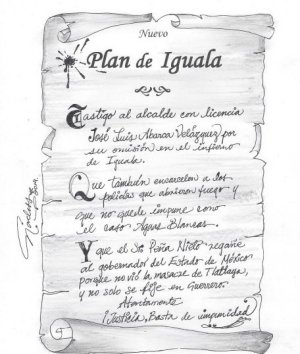 Nuevo
Plan de Iguala
Castigo al alcalde con licencia
José Luis Abarca Velázquez por
su omisión en el infierno
de Iguala.
Que también encarcelen a los
policías que abrieron fuego y
que no quede impune como
el caso Aguas Blancas.
Y que el Sr. Peña Nieto regañe
al gobernador del Estado de México
porque no vió la masacre de Tlatlaya,
y no solo se fije en Guerrero.
Atentamente
¡Justicia, Basta de impunidad!